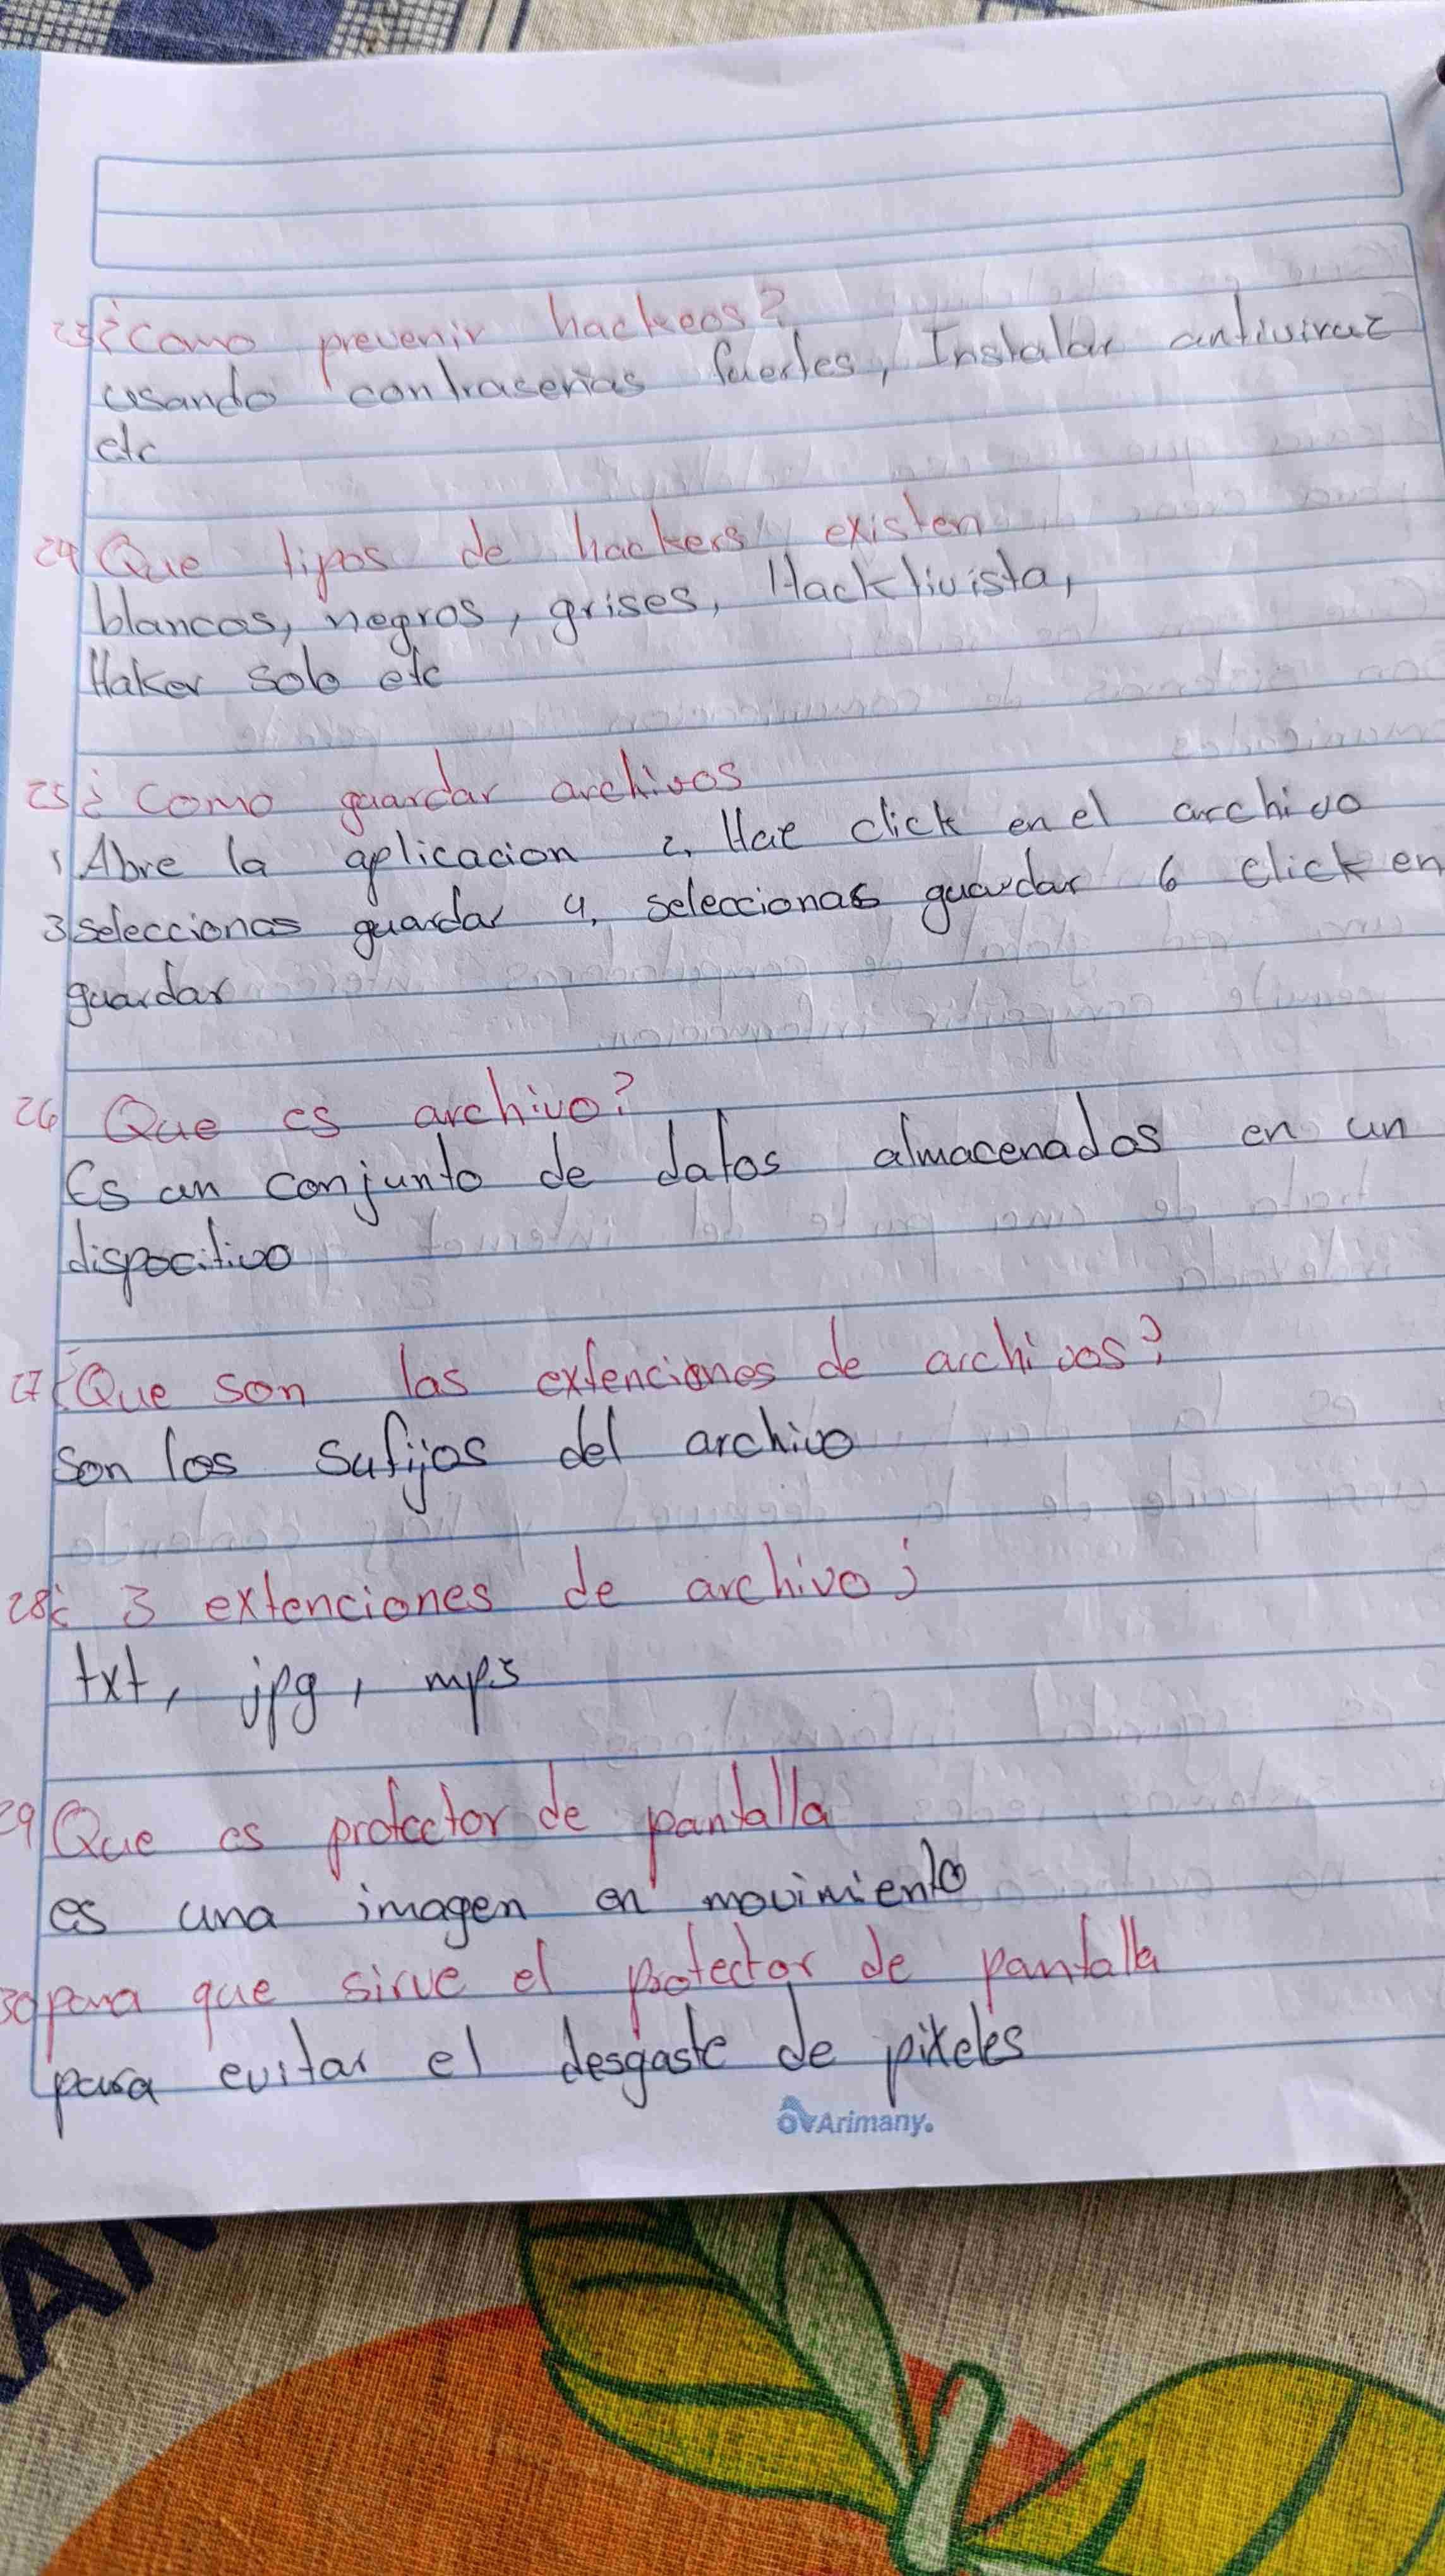 23 ¿Como prevenir hackeos?
usando contraseñas fuertes, Instalar antiviruz
etc
24 Que tipos de hackers existen
blancos, negros, grises, Hacktivista,
Haker solo etc
25 ¿Como guardar archivos
1 Abre la aplicacion 2, Haz click en el archivo
3 seleccionas guardar 4, seleccionas guardar 6 click en
guardar
26 Que es archivo?
Es un conjunto de datos almacenados en un
dispocitivo
27 ¿Que son las extenciones de archivos?
Son los sufijos del archivo
28 ¿ 3 extenciones de archivo?
txt, jpg, mp3
29 Que es protector de pantalla
es una imagen en movimiento
30 para que sirve el protector de pantalla
para evitar el desgaste de pixeles
Arimany.